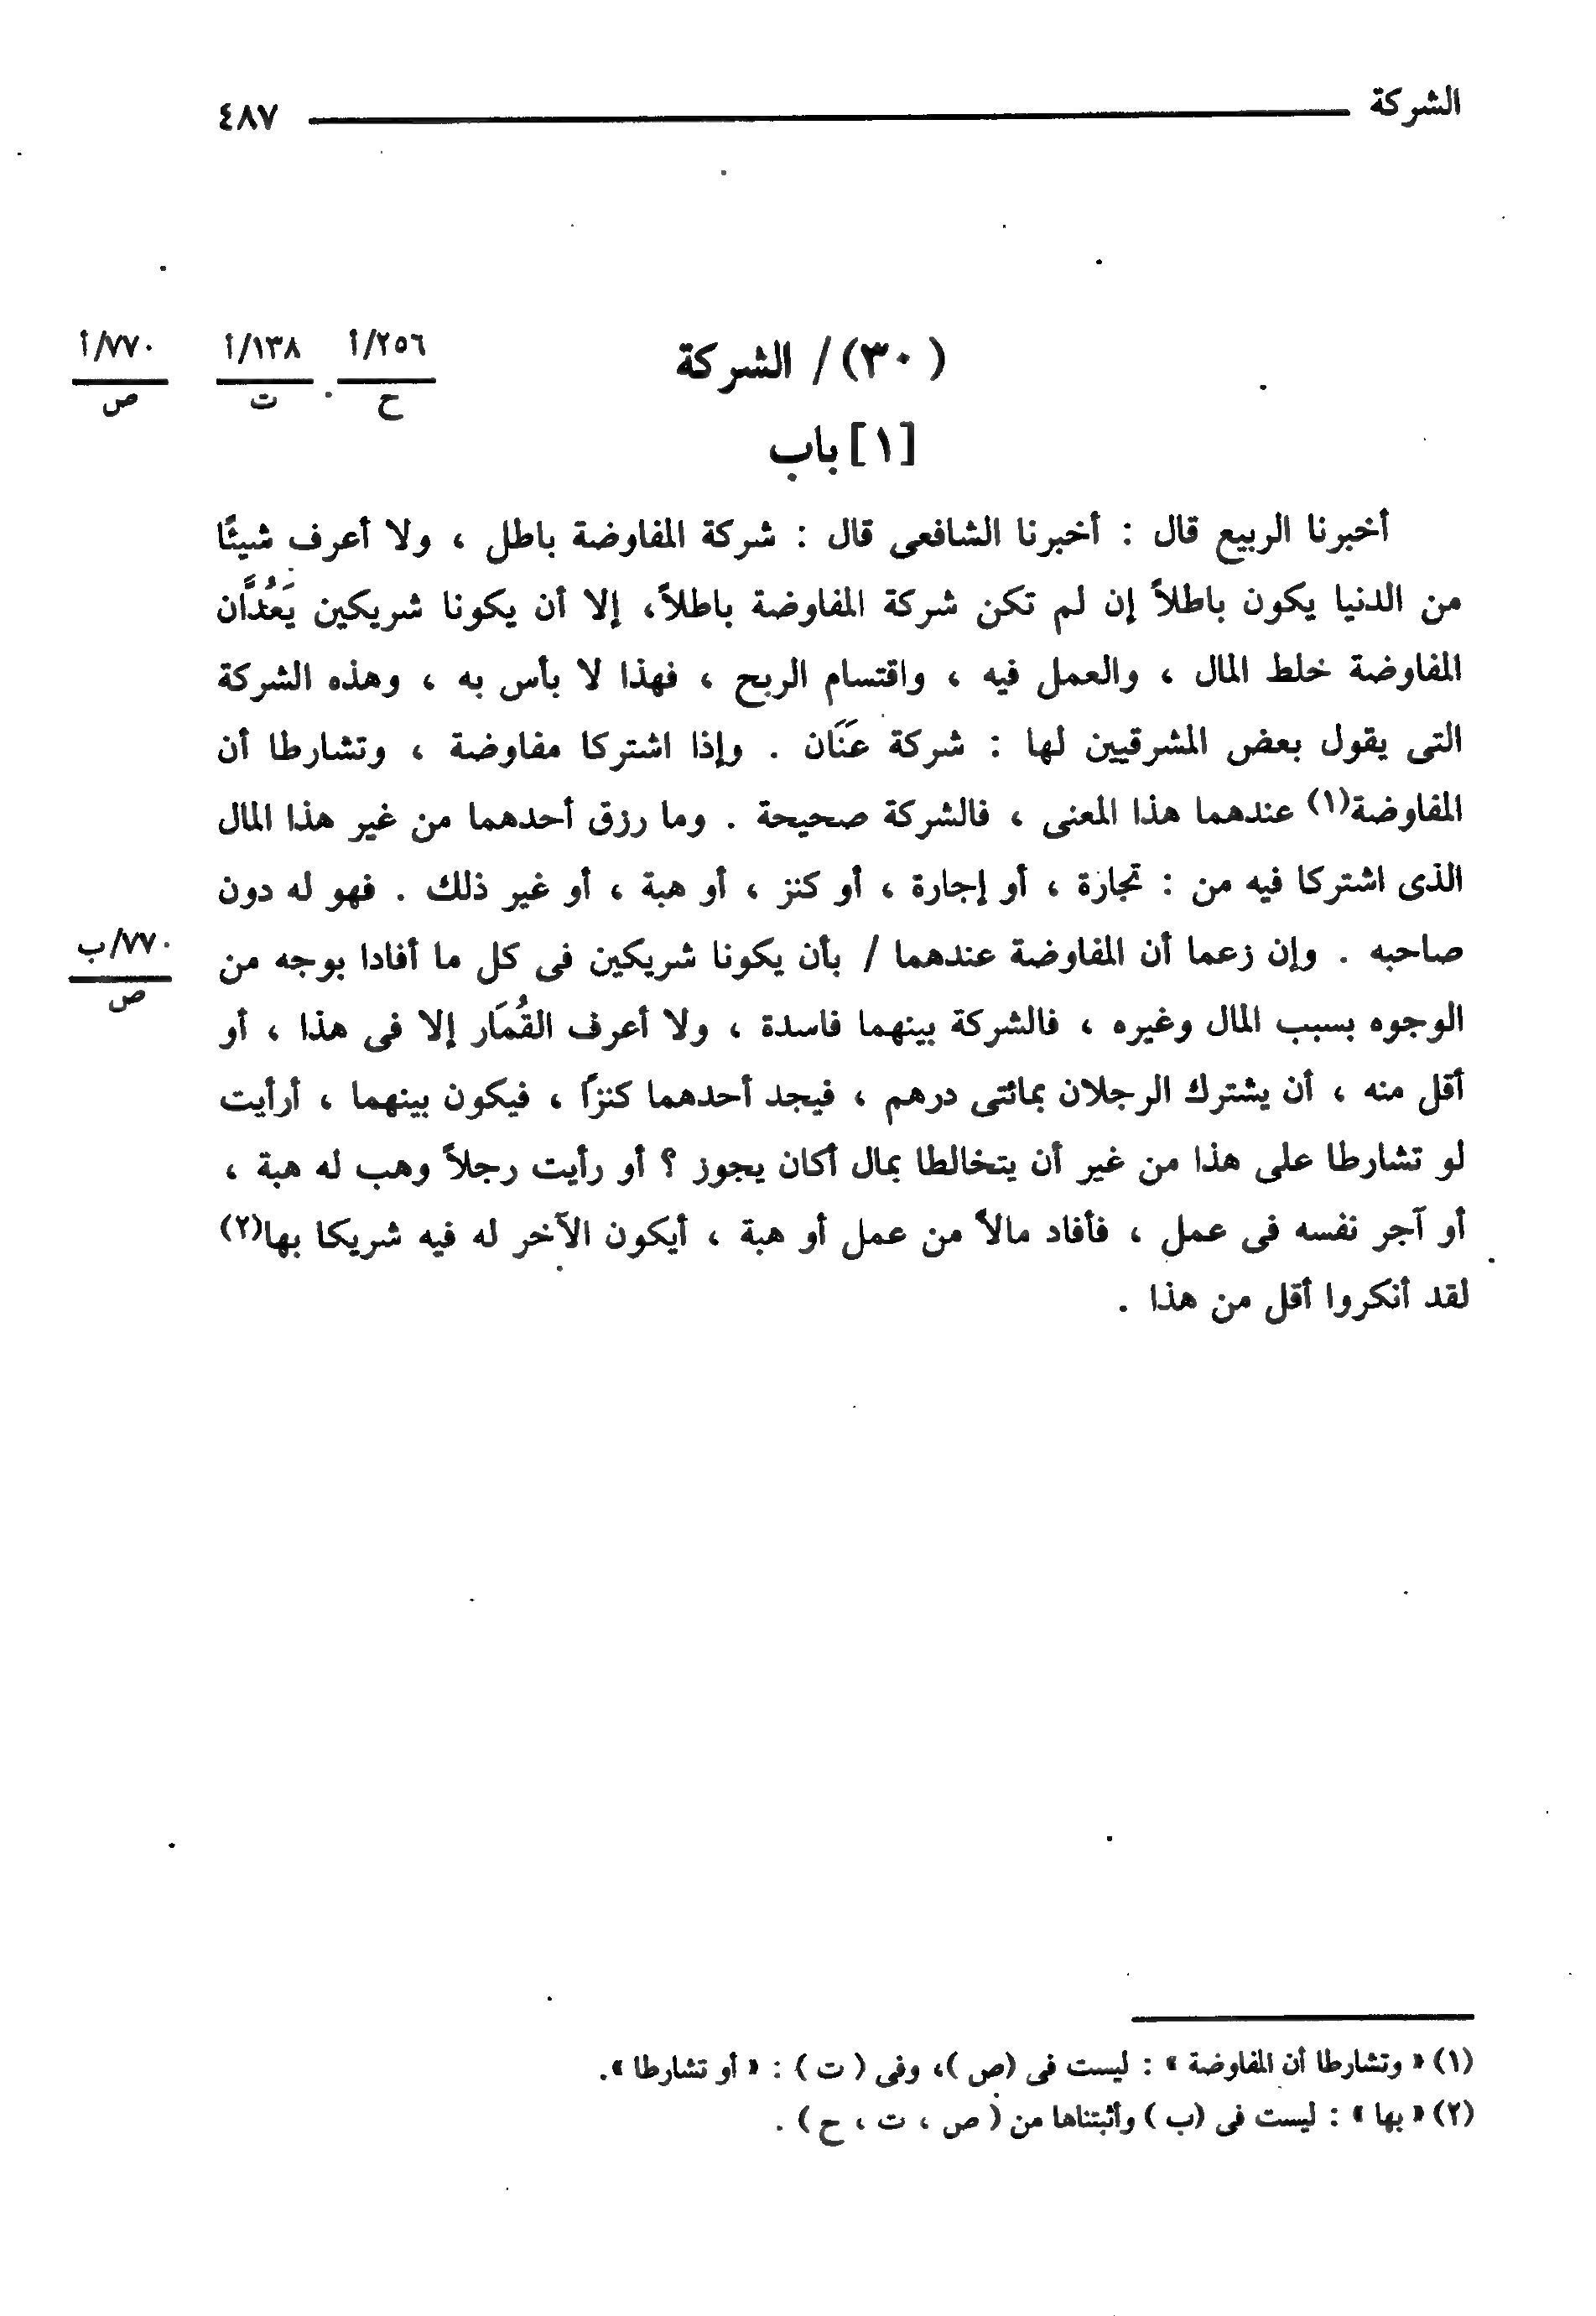 الشركة ٤٨٧
(٣٠) / الشركة
٢٥٦/أ
ح
١٣٨/أ
ت
٧٧٠/أ
ص
[١] باب
أخبرنا الربيع قال : أخبرنا الشافعى قال : شركة المفاوضة باطل ، ولا أعرف شيئًا
من الدنيا يكون باطلاً إن لم تكن شركة المفاوضة باطلاً، إلا أن يكونا شريكين يَعُدَّان
المفاوضة خلط المال ، والعمل فيه ، واقتسام الربح ، فهذا لا بأس به ، وهذه الشركة
التى يقول بعض المشرقيين لها : شركة عَنَان . وإذا اشتركا مفاوضة ، وتشارطا أن
المفاوضة(١) عندهما هذا المعنى ، فالشركة صحيحة . وما رزق أحدهما من غير هذا المال
الذى اشتركا فيه من : تجارة ، أو إجارة ، أو كنز ، أو هبة ، أو غير ذلك . فهو له دون
صاحبه . وإن زعما أن المفاوضة عندهما / بأن يكونا شريكين فى كل ما أفادا بوجه من
٧٧٠/ب
ص
الوجوه بسبب المال وغيره ، فالشركة بينهما فاسدة ، ولا أعرف القُمَار إلا فى هذا ، أو
أقل منه ، أن يشترك الرجلان بمائتى درهم ، فيجد أحدهما كنزًا ، فيكون بينهما ، أرأيت
لو تشارطا على هذا من غير أن يتخالطا بمال أكان يجوز ؟ أو رأيت رجلاً وهب له هبة ،
أو آجر نفسه فى عمل ، فأفاد مالاً من عمل أو هبة ، أيكون الآخر له فيه شريكا بها(٢)
لقد أنكروا أقل من هذا .
(١) « وتشارطا أن المفاوضة » : ليست فى (ص )، وفى ( ت ) : « أو تشارطا ».
(٢) « بها » : ليست فى (ب ) وأثبتناها من ( ص ، ت ، ح ) .